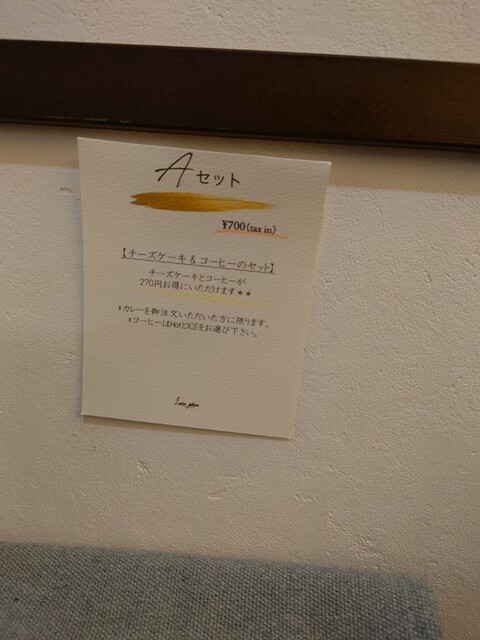 Aセット
¥700(tax in)
【チーズケーキ & コーヒーのセット】
チーズケーキとコーヒーが
270円お得にいただけます★★
カレーを御注文いただいた方に限ります。
コーヒーはHotとICEをお選び下さい。